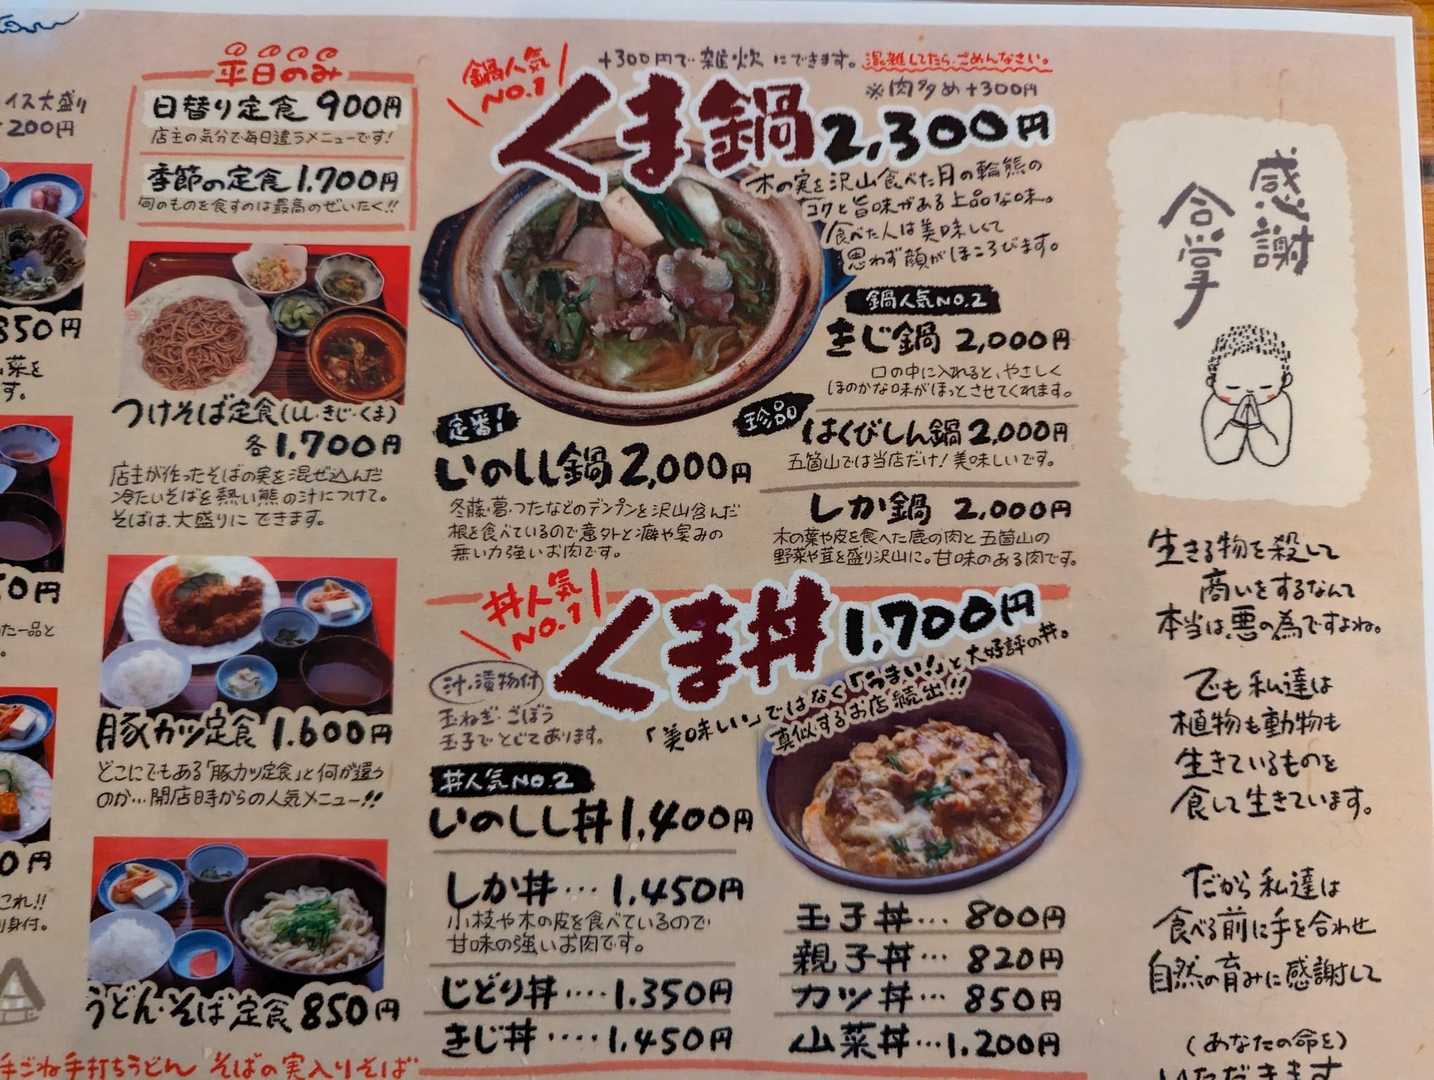 イス大盛り
200円
850円
菜を
す。
50円
た一品と
0円
これ!!
刺身付。
平日のみ
日替り定食 900円
店主の気分で毎日違うメニューです!
季節の定食 1,700円
旬のものを食すのは最高のぜいたく!!
つけそば定食(しし・きじ・くま)
各1,700円
店主が作ったそばの実を混ぜ込んだ
冷たいそばを熱い熊の汁につけて。
そばは大盛りにできます。
豚カツ定食 1.600円
どこにでもある「豚カツ定食」と何が違う
のか…開店時からの人気メニュー!!
うどん・そば定食 850円
手ごね手打ちうどん そばの実入りそば
鍋人気
NO.1
+300円で雑炊にできます。混雑してたらごめんなさい。
※肉多め+300円
くま鍋 2,300円
木の実を沢山食べた月の輪熊の
コクと旨味がある上品な味。
食べた人は美味しくて
思わず顔がほころびます。
鍋人気NO.2
きじ鍋 2,000円
口の中に入れると、やさしく
ほのかな味がほっとさせてくれます。
定番!
いのしし鍋 2,000円
冬藤・葛・つたなどのデンプンを沢山含んだ
根を食べているので意外と癖や臭みの
無い力強いお肉です。
珍品
はくびしん鍋 2,000円
五箇山では当店だけ!美味しいです。
しか鍋 2,000円
木の葉や皮を食べた鹿の肉と五箇山の
野菜や茸を盛り沢山に。甘味のある肉です。
丼人気
NO.1
くま丼 1,700円
汁・漬物付
玉ねぎ・ごぼう
玉子でとじてあります。
「美味しい」ではなく「うまい!」と大好評の丼。
真似するお店続出!!
丼人気NO.2
いのしし丼 1,400円
しか丼… 1,450円
小枝や木の皮を食べているので
甘味の強いお肉です。
じどり丼…. 1.350円
きじ丼….. 1.450円
玉子丼… 800円
親子丼… 820円
カツ丼… 850円
山菜丼…1.200円
感謝
合掌
生きる物を殺して
商いをするなんて
本当は悪の為ですよね。
でも私達は
植物も動物も
生きているものを
食して生きています。
だから私達は
食べる前に手を合わせ
自然の育みに感謝して
(あなたの命を)
いただきます